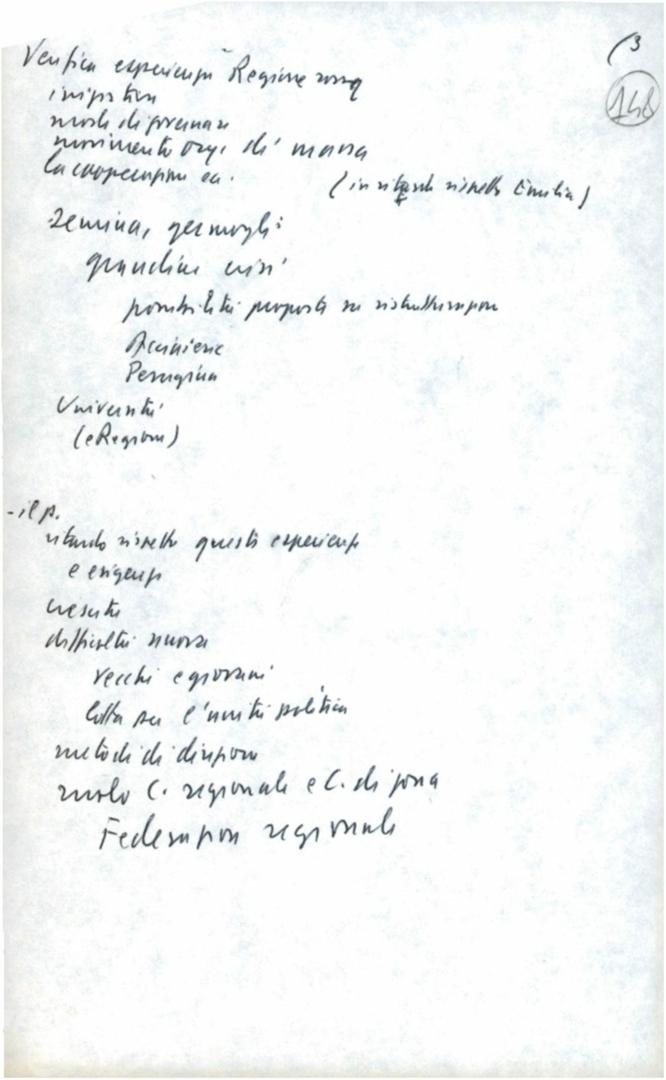 (3
148
Verifica esperienza Regione rossa
iniziativa
modo di governare
movimento orgi. di massa
la cooperazione ec.
(in ritardo rispetto Emilia)
semina, germogli
grandine crisi
possibilità proposte su ristrutturazione
Acciaierie
Perugina
Università
(e Regione)
- il p.
ritardo rispetto queste esperienze
e esigenze
crescita
difficoltà nuova
vecchi e giovani
lotta per l'unità politica
metodi di direzione
ruolo C. regionale e C. di zona
Federazione regionale